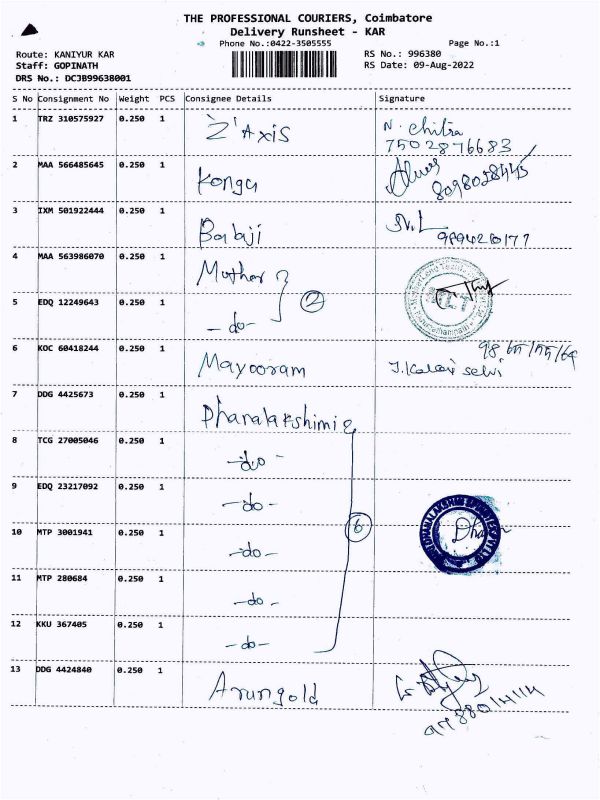 THE PROFESSIONAL COURIERS, Coimbatore
Delivery Runsheet - KAR
Phone No.:0422-3505555
Page No.:1
Route: KANIYUR KAR
RS No.: 996380
Staff: GOPINATH
RS Date: 09-Aug-2022
DRS No.: DCJB99638001
S No Consignment No Weight PCS Consignee Details Signature
1 TRZ 310575927 0.250 1 Z'Axis N. Chitra
7502876683
2 MAA 566485645 0.250 1 Kongu
8098028445
3 IXM 501922444 0.250 1 Babaji
4 MAA 563986070 0.250 1 Muthar
5 EDQ 12249643 0.250 1 -do- 2
6 KOC 60418244 0.250 1 Mayooram J. Kalai selvi
7 DDG 4425673 0.250 1 Dhanalakshimi
8 TCG 27005046 0.250 1 -do-
9 EDQ 23217092 0.250 1 -do-
10 MTP 3001941 0.250 1 -do- 6
11 MTP 280684 0.250 1 -do-
12 KKU 367405 0.250 1 -do-
13 DDG 4424840 0.250 1 Arungold